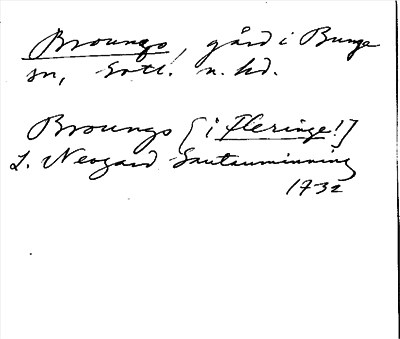 Broungs, gård i Bunge
sn, Gotl. n. hd.
Broungs [i Fleringe!]
L. Neogard Gautauminning
1732